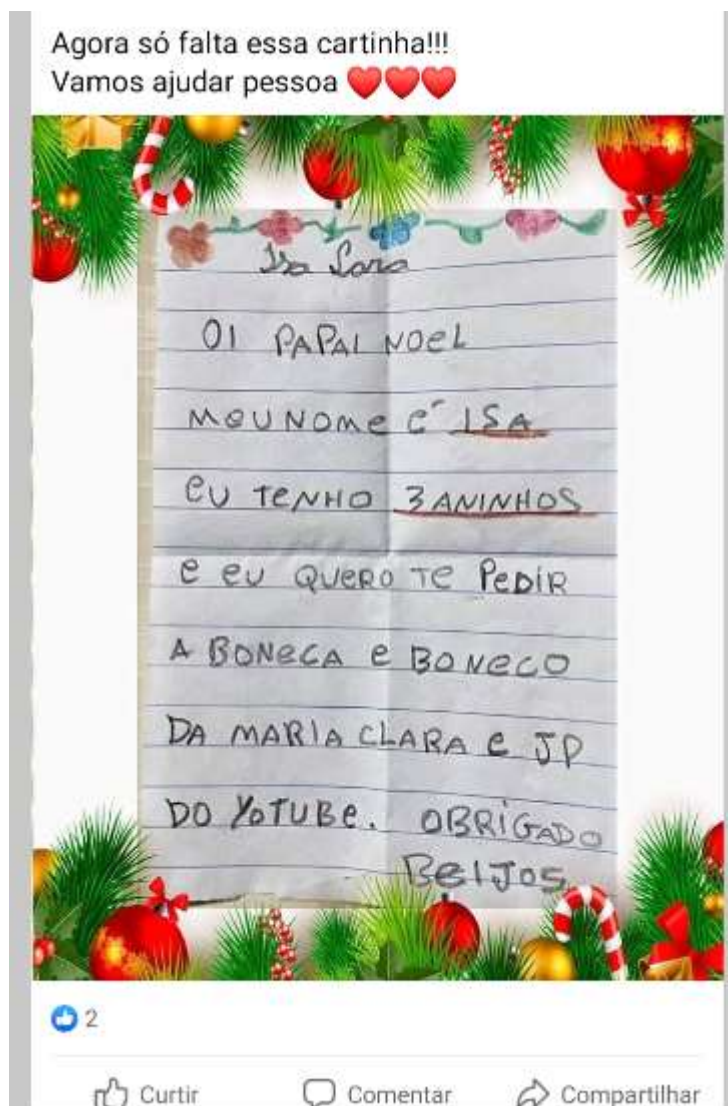 Agora só falta essa cartinha!!!
Vamos ajudar pessoa ❤️❤️❤️
Isa Lara
OI PAPAI NOEL
MEU NOME É ISA
EU TENHO 3 ANINHOS
E EU QUERO TE PEDIR
A BONECA E BONECO
DA MARIA CLARA E JP
DO YOTUBE. OBRIGADO
BEIJOS
2
Curtir Comentar Compartilhar